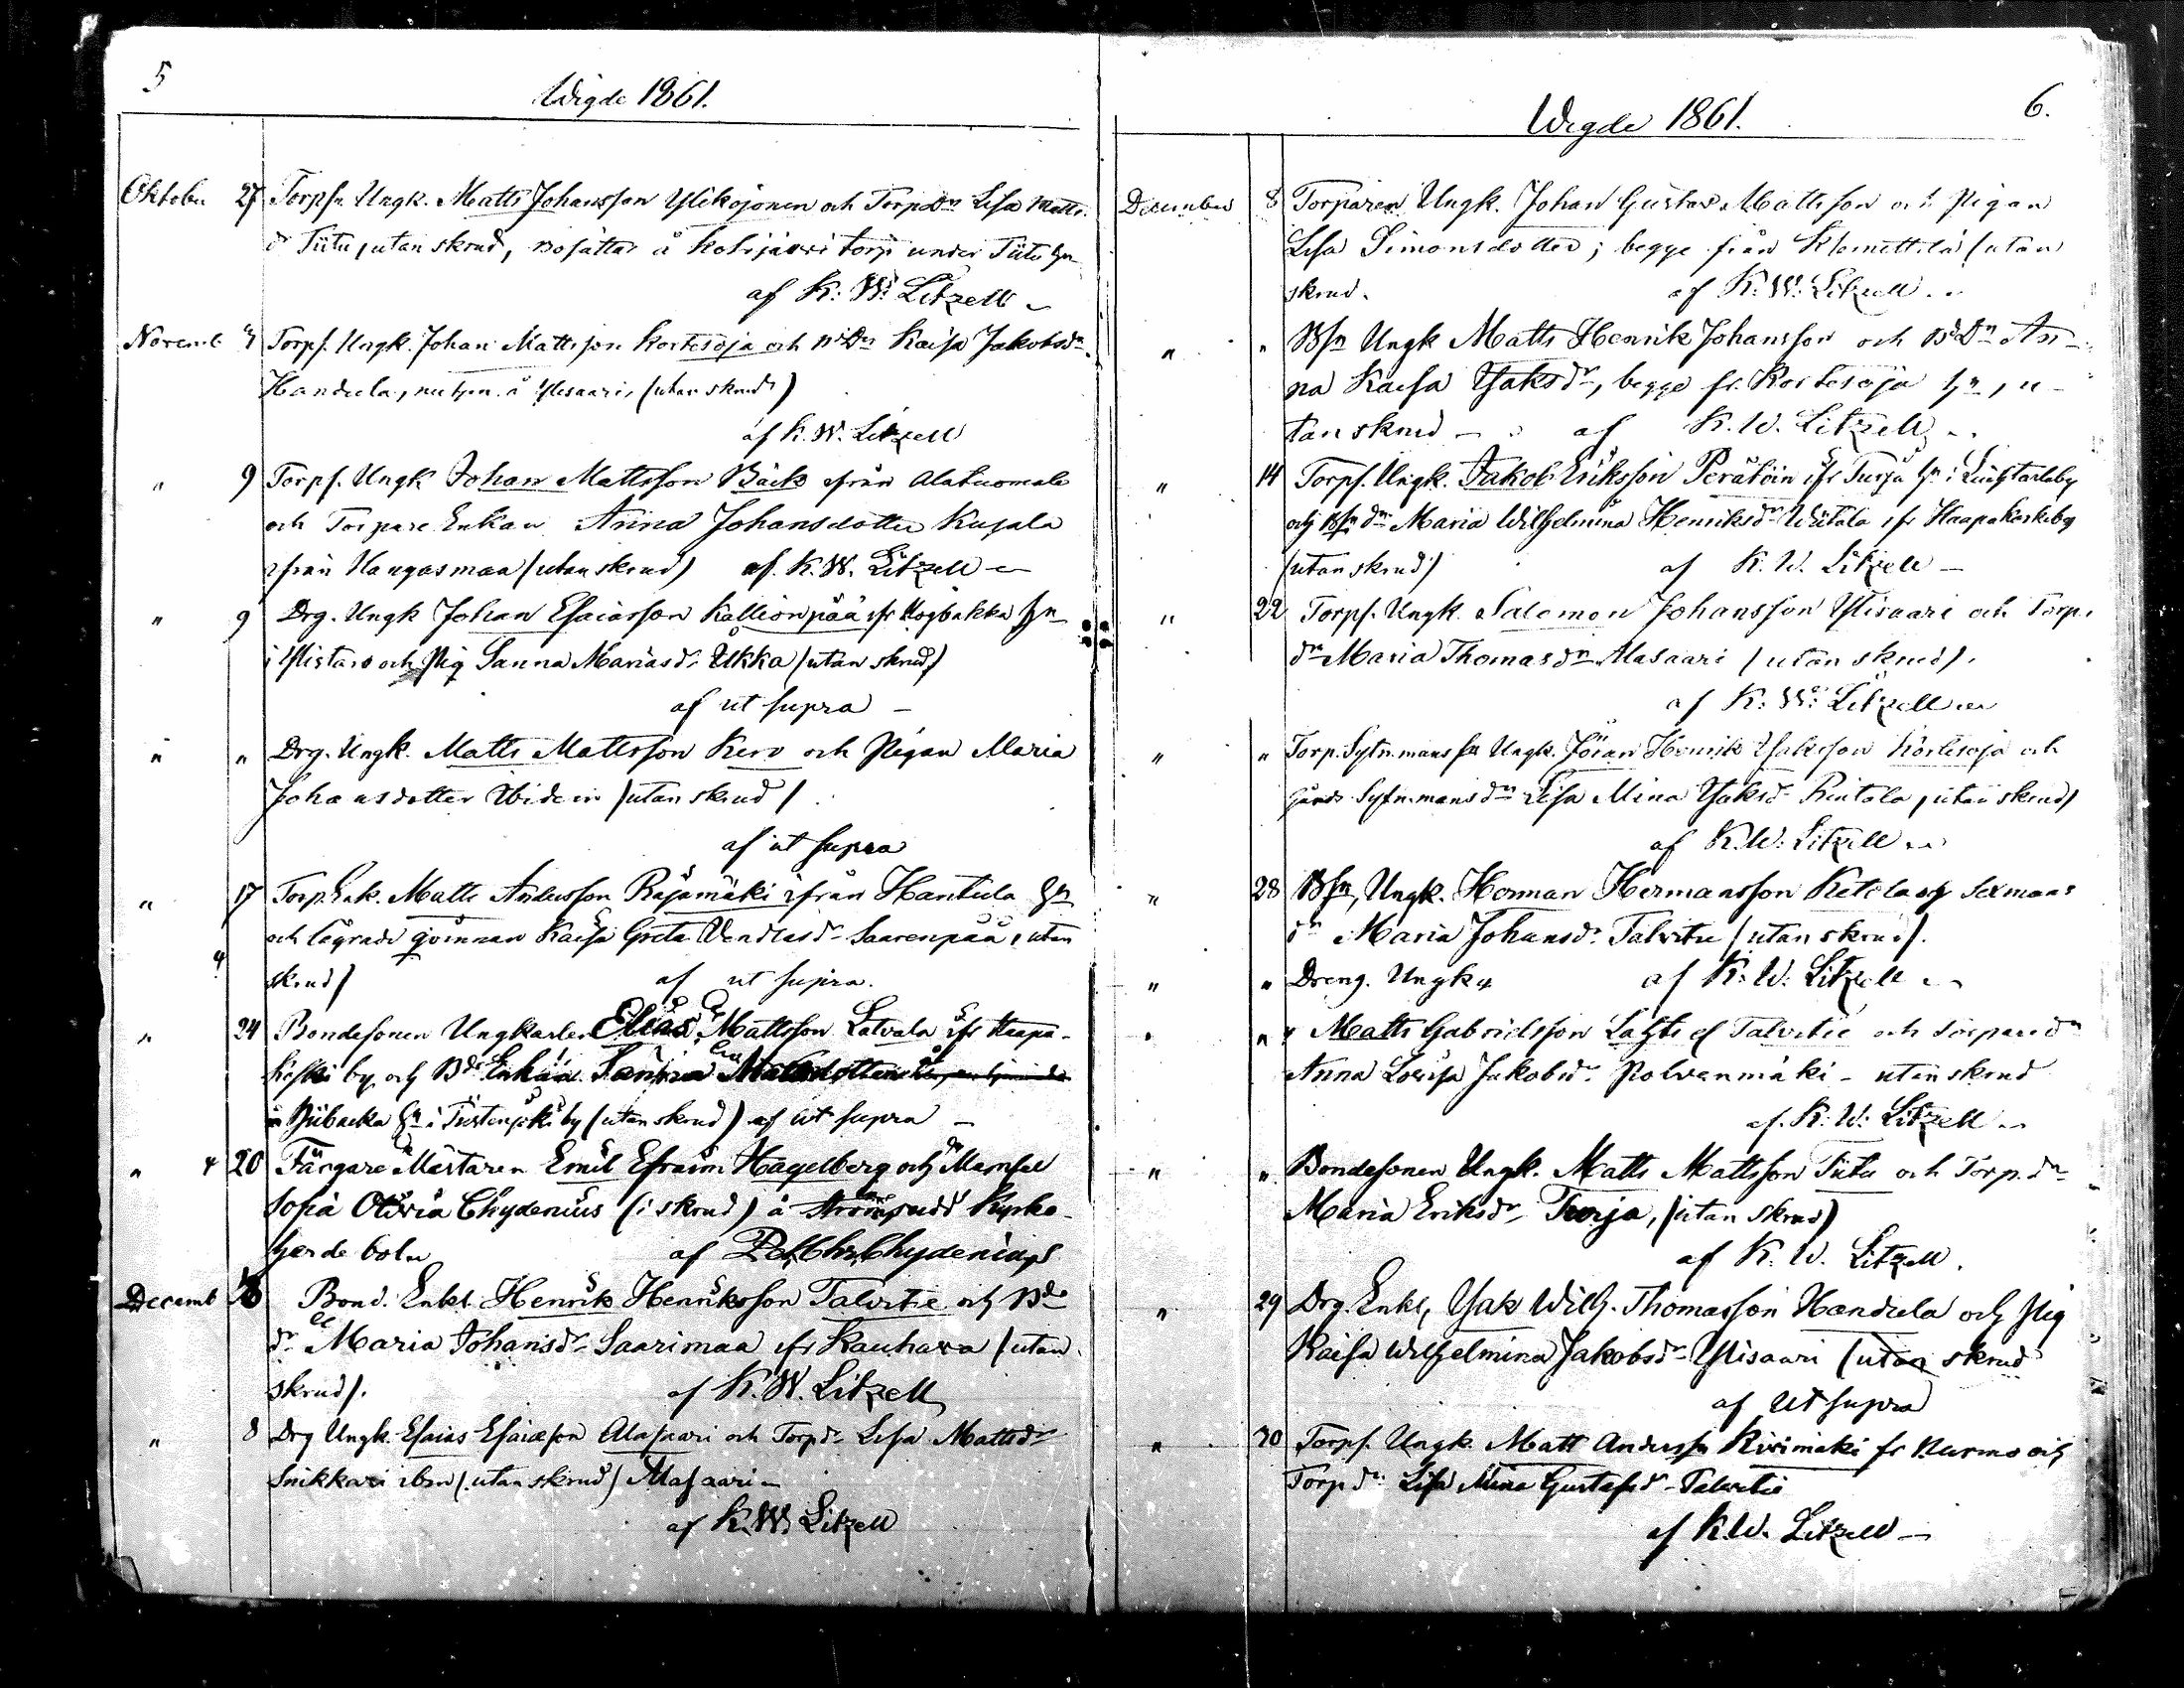 5
Wigde 1861.
Oktober 27 Torpsn Ungk. Matts Johansson Ylikojonen och Torp Dr Lisa Matts.
dr Tiitu, utan skrud, Bosättas å Kotijärvi torp under Tiitu hn
af K: W: Litzell
Novemb 3 Torps. Ungk. Johan Mattsson Kortesoja och Kaisa Jakobsdr
Handula, å Ylisaari, (utan skrud)
af K. W. Litzell
" 9 Torps. Ungk Johan Mattsson Bäck ifrån Alatuomala
och Torpare Enkan Anna Johansdotter Kujala
ifrån Kangasmaa (utan skrud) af K. W. Litzell
" 9 Drg. Ungk Johan Esaiasson Kallionpää ifr Högbakka hn
i Ylistaro och Pig Sanna Mariasdr Ukka (utan skrud)
af ut supra
" " Drg. Ungk. Matts Mattsson Kero och Pigan Maria
Johansdotter Widein (utan skrud)
af ut supra
" 17 Torp. Enk. Matts Andersson Rajamäki ifrån Hantula hn
och lägrade qvinnan Kaisa Greta Vendlasdr Saarenpää, utan
skrud) af ut supra.
" 24 Bondesonen Ungkarlen Elias Mattsson Latvala ifr Haapa-
koski by och Bde Enkan Sanna Mattsdotter
å Byibacka hn i Tiistenjoki by (utan skrud) af ut supra
" 20 Färgare Mästaren Emil Efraim Hagelberg och Mamsel
Sofia Olivia Chydenius (i skrud) å Kyrko-
herde bol af Pet. Chr. Chydenius
Decemb Bond. Enkl. Henrik Henriksson Talvitie och Bde
dr Maria Johansdr Saarimaa ifr Kauhava (utan
skrud). af K. W. Litzell
" 8 Drg Ungk. Esaias Esaiasson Alasaari och Torpdr Lisa Mattsdr
Snikkari ibm (utan skrud) Alasaari
af K. W. Litzell
6.
Wigde 1861.
December 8 Torparen Ungk. Johan Gustav Mattsson och Pigan
Lisa Simonsdotter; begge från Klemettilä (utan
skrud. af K. W. Litzell
" " Bsn Ungk Matts Henrik Johansson och BdDn An-
na Kaisa Isaksdr, begge fr. Kortesoja hn, u-
tan skrud af K. W. Litzell
" 14 Torps. Ungk. Jakob Eriksson Perälöin ifr Turja hn i
och Bsn dr Maria Wilhelmina Henriksdr Wiitala ifr Haapakoskiby
(utan skrud) af K. W. Litzell
" 22 Torps. Ungk. Salomon Johansson Ylisaari och Torp.
dr Maria Thomasdr Alasaari (utan skrud).
af K: W: Litzell
" " Torp. Sytn.mans sn Ungk. Jöran Henrik Isaksson Kortesoja och
Gårds Sytn.mans dr Lisa Mina Isaksdr Rintala, utan skrud)
af K. W. Litzell
" 28 Bsn, Ungk. Herman Hermansson Ketola och Sexmans
dr Maria Johansdr Talvitie (utan skrud).
" " Dreng. Ungk af K. W. Litzell
" " Matts Gabrielsson Lahti el Talvitie och Torparedr
Anna Lovisa Jakobsdr Polvenmäki - utan skrud
af. K. W. Litzell
" " Bondesonen Ungk. Matts Mattsson Tiitu och Torp.dr
Maria Eriksdr Turja, (utan skrud)
af K. W. Litzell.
" 29 Drg. Enkl, Isak Wilh. Thomasson Handula och Pig
Kaisa Wilhelmina Jakobsdr Ylisaari (utan skrud
af Ut supra
" 30 Torps. Ungk. Matt Andersson Kivimäki fr Nurmo och
Torp dr Lisa Mina Gustafsdr Talvitie
af K. W. Litzell